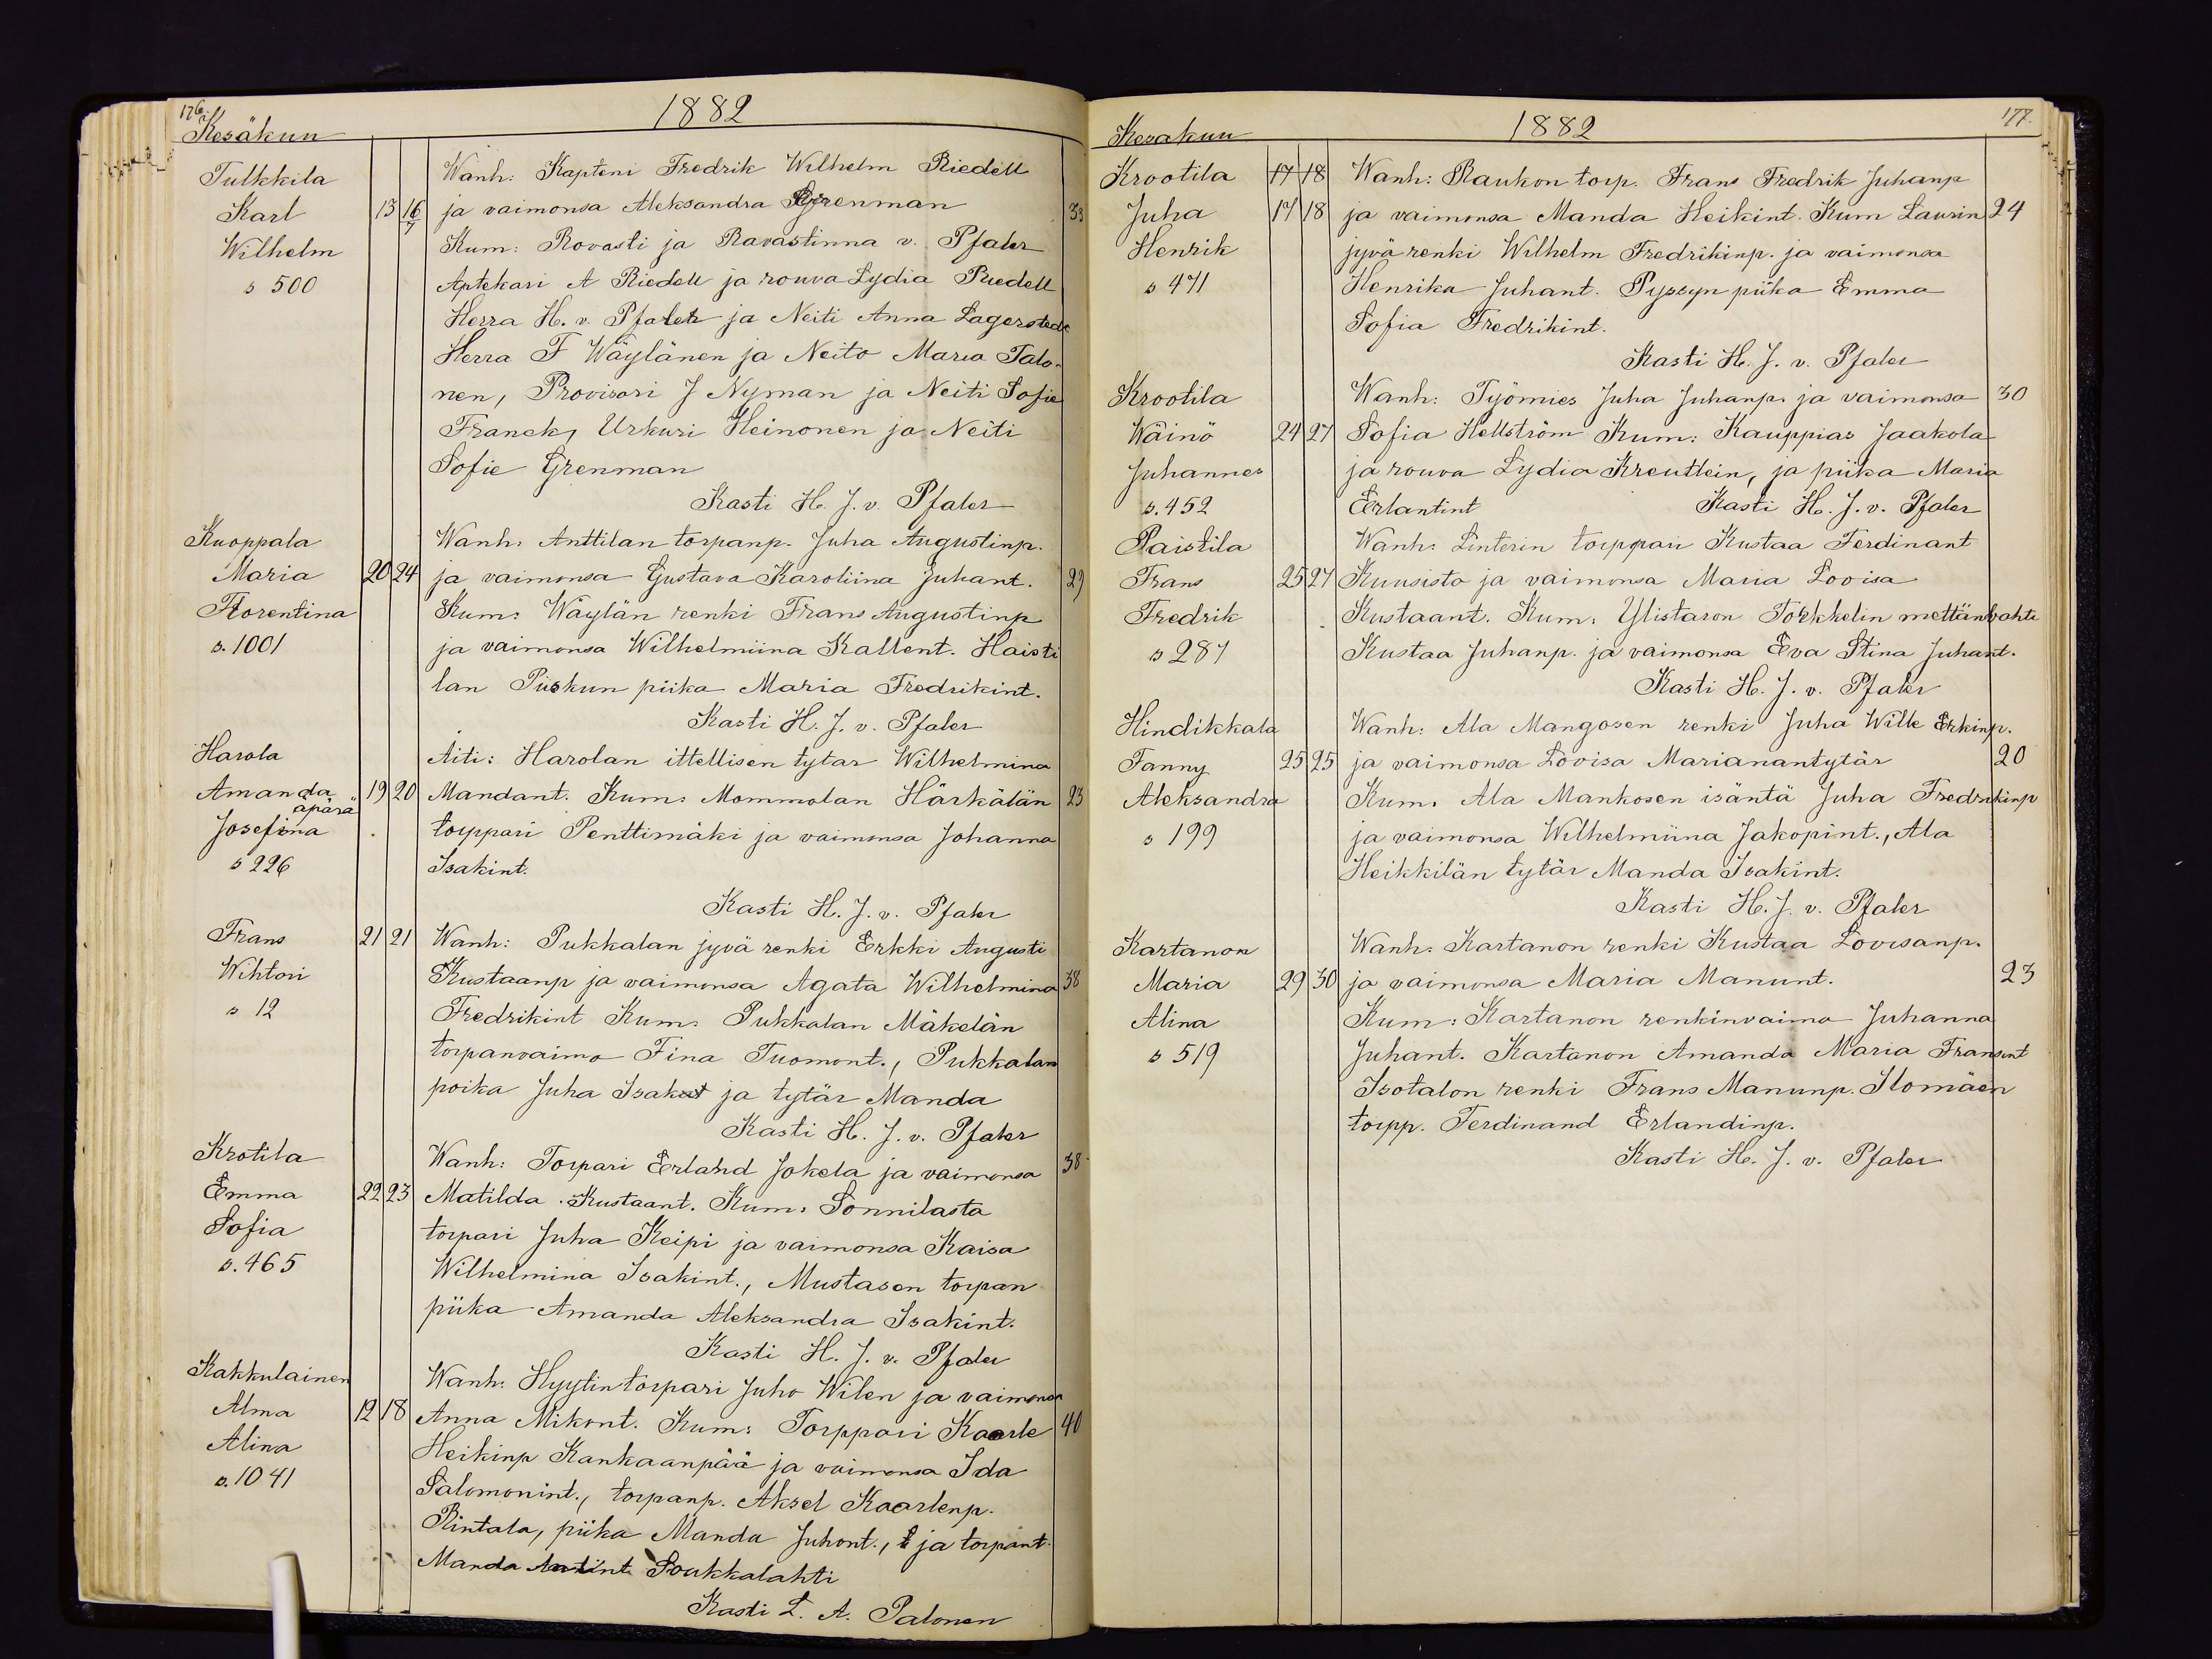 176.
1882
Kesäkuu
Tulkkila
Karl 13 16/7
Wilhelm
s 500
Wanh: Kapteni Fredrik Wilhelm Riedell
ja vaimonsa Aleksandra Grenman 33
Kum: Rovasti ja Ravastinna v. Pfaler
Aptekari A Riedell ja rouva Lydia Riedell
Herra H. v. Pfaler ja Neiti Anna Lagerstedt
Herra F Wäylänen ja Neito Maria Talo-
nen, Provisori J Nyman ja Neiti Sofie
Franck, Urkuri Heinonen ja Neiti
Sofie Grenman
Kasti H. J. v. Pfaler
Kuoppala
Maria 20 24
Florentina
s. 1001
Wanh: Anttilan torpanp. Juha Augustinp.
ja vaimonsa Gustava Karoliina Juhant. 29
Kum: Wäylän renki Frans Augustinp
ja vaimonsa Wilhelmiina Kallent. Haisti
lan Piiskun piika Maria Fredrikint.
Kasti H. J. v. Pfaler
Harola
Amanda 19 20
äpärä
Josefina
s 226
Äiti: Harolan ittellisen tytar Wilhelmina
Mandant. Kum: Mommolan Härkälän 23
torppari Penttimäki ja vaimonsa Johanna
Isakint.
Kasti H. J. v. Pfaler
Frans 21 21
Wihtori
s 12
Wanh: Pukkalan jyvä renki Erkki Augusti
Kustaanp ja vaimonsa Agata Wilhelmina 38
Fredrikint Kum: Pukkalan Mäkelän
torpanvaimo Fina Tuomont., Pukkalan
poika Juha Isak ja tytär Manda
Kasti H. J. v. Pfaler
Krotila
Emma 22 23
Sofia
s. 465
Wanh: Torpari Erland Jokela ja vaimonsa 38
Matilda Kustaant. Kum: Sonnilasta
torpari Juha Keipi ja vaimonsa Kaisa
Wilhelmina Isakint., Mustason torpan
piika Amanda Aleksandra Isakint.
Kasti H. J. v. Pfaler
Kakkulainen
Alma 12 18
Alina
s. 1041
Wanh: Hyytin torpari Juho Wilen ja vaimonsa
Anna Mikont. Kum: Torppari Kaarle 40
Heikinp Kankaanpää ja vaimonsa Ida
Salomonint., torpanp. Aksel Kaarlenp.
Rintala, piika Manda Juhont., ja torpant.
Manda Antint Soukkalahti
Kasti L. A. Palonen
177.
1882
Kesakuu
Krootila 17 18
Juha 17 18
Henrik
s 471
Wanh: Raukon torp. Frans Fredrik Juhanp
ja vaimonsa Manda Heikint. Kum Laurin 24
jyvä renki Wilhelm Fredrikinp. ja vaimonsa
Henrika Juhant. Pyssyn piika Emma
Sofia Fredrikint.
Kasti H. J. v. Pfaler
Krootila
Wäinö 24 27
Juhannes
s. 452
Wanh: Työmies Juha Juhanp. ja vaimonsa 30
Sofia Hellström Kum: Kauppias Jaakola
ja rouva Lydia Kreutlein, ja piika Maria
Erlantint Kasti H. J. v. Pfaler
Paistila
Frans 25 27
Fredrik
s 287
Wanh: Linterin torppari Kustaa Ferdinant
Kuusisto ja vaimonsa Maria Lovisa
Kustaant. Kum: Ylistaron Torkkelin mettänvahti
Kustaa Juhanp. ja vaimonsa Eva Stina Juhant.
Kasti H. J. v. Pfaler
Hindikkala
Fanny 25 25
Aleksandra
s 199
Wanh: Ala Mangosen renki Juha Wille Erkinp.
ja vaimonsa Lovisa Marianantytär 20
Kum: Ala Mankosen isäntä Juha Fredrikinp
ja vaimonsa Wilhelmiina Jakopint., Ala
Heikkilän tytär Manda Isakint.
Kasti H. J. v. Pfaler
Kartanon
Maria 29 30
Alina
s 519
Wanh: Kartanon renki Kustaa Lovisanp.
ja vaimonsa Maria Manunt. 23
Kum: Kartanon renkinvaimo Juhanna
Juhant. Kartanon Amanda Maria Fransint
Isotalon renki Frans Manunp. Ilomäen
torpp. Ferdinand Erlandinp.
Kasti H. J. v. Pfaler